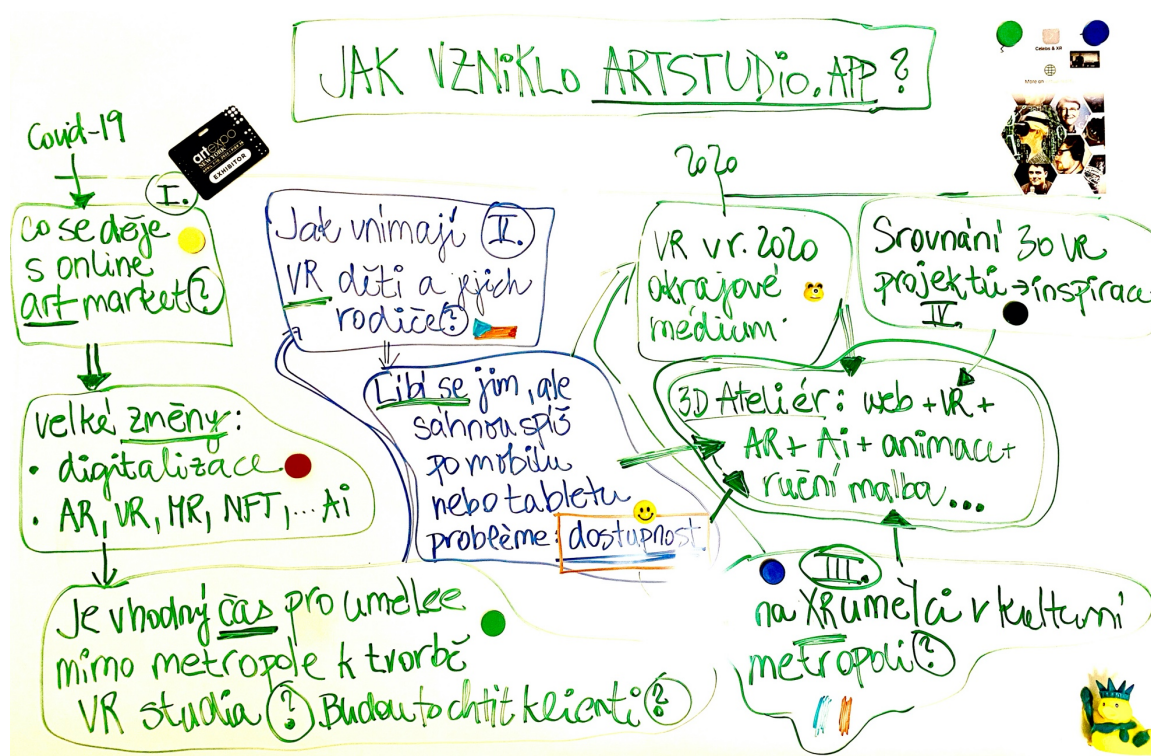 JAK VZNIKLO ARTSTUDIO.APP?
Celebs & XR
More on
Covid-19
artexpo
NEW YORK
EXHIBITOR
I.
co se děje
s online
art market?
velké změny:
• digitalizace
• AR, VR, MR, NFT,... Ai
Je vhodný čas pro umělce
mimo metropole k tvorbě
VR studia? Budou to chtít klienti?
Jak vnímají II.
VR děti a jejich
rodiče?
Líbí se jim, ale
sáhnou spíš
po mobilu
nebo tabletu
problème: dostupnost
2020
VR v r. 2020
okrajové
médium
Srovnání 30 VR
projektů → inspirace
IV.
3D Ateliér: web + VR +
AR + Ai + animace +
ruční malba...
III.
na XR umělci v kulturní
metropoli?